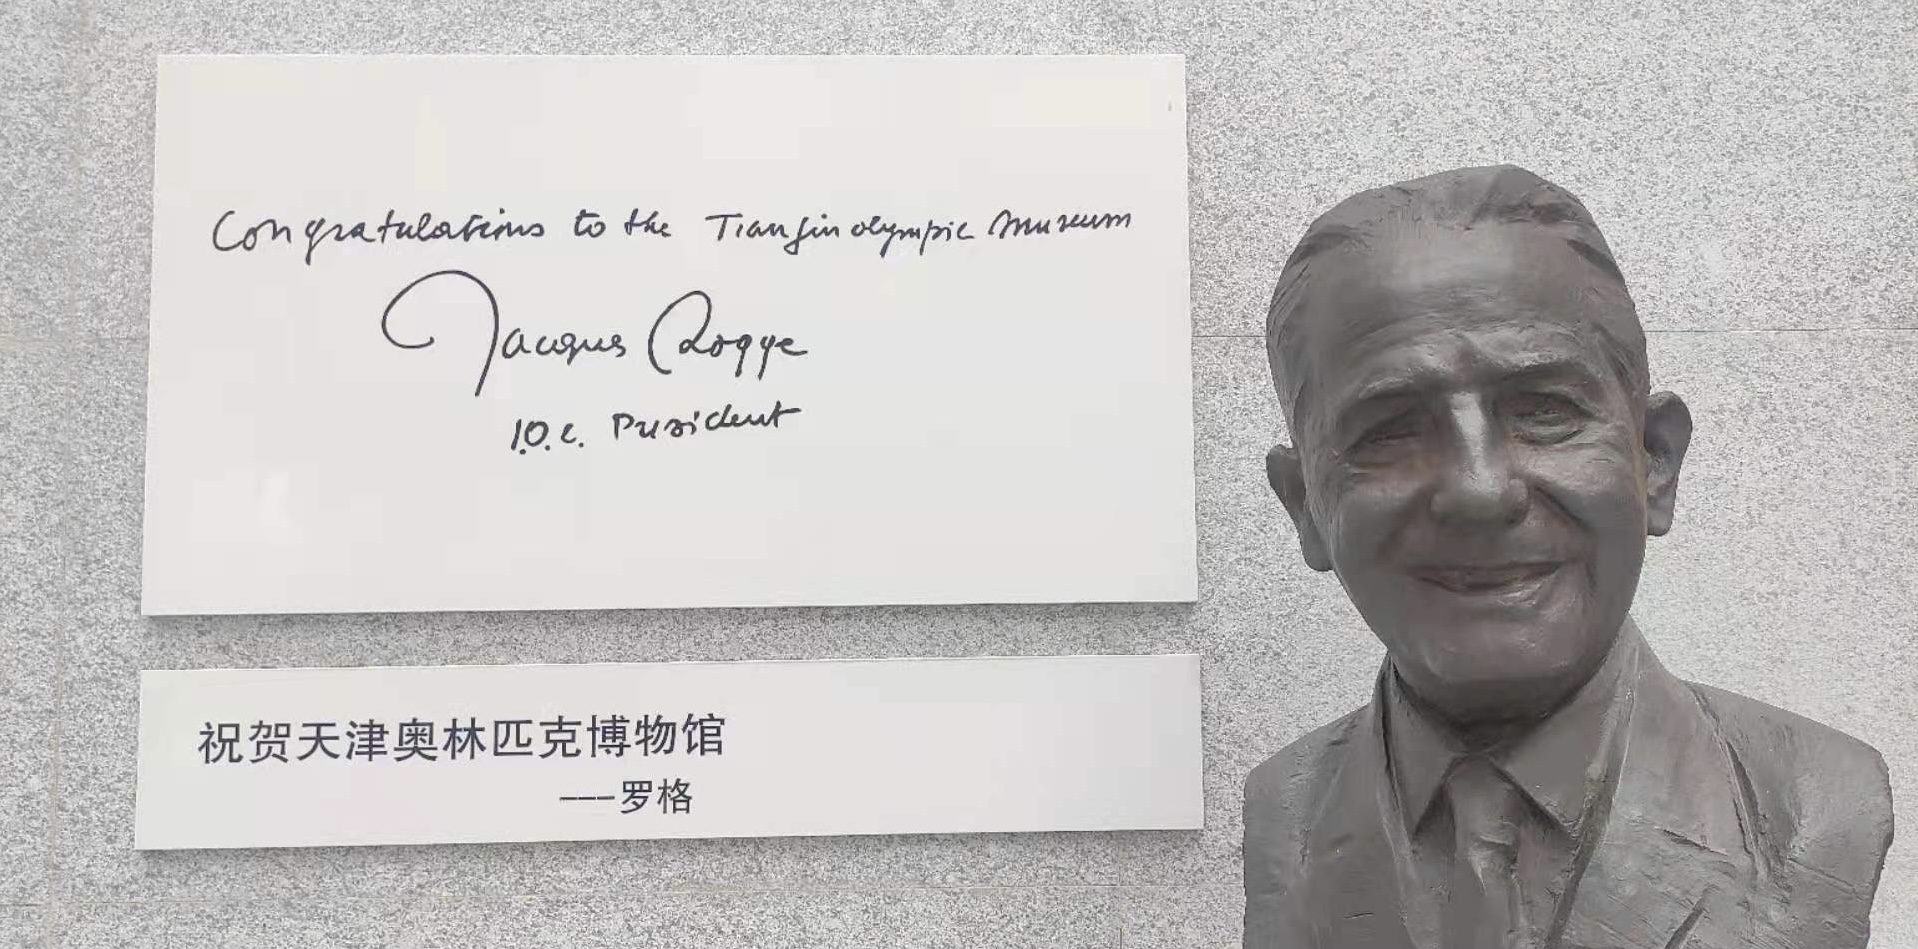 Congratulations to the Tianjin olympic Museum
Jacques Rogge
I.O.C. President
祝贺天津奥林匹克博物馆
---罗格